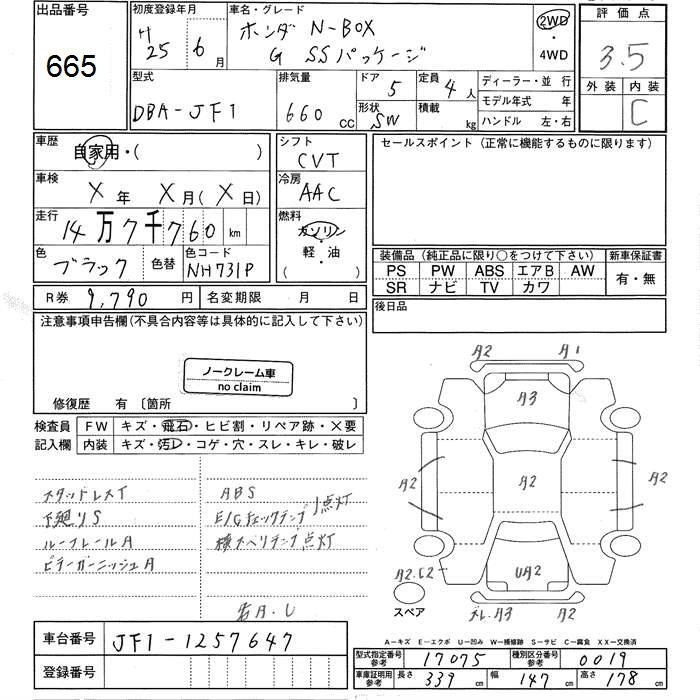 出品番号
665
初度登録年月
H25年6月
車名・グレード
ホンダ N-BOX
G SSパッケージ
2WD
・
4WD
評価点
3.5
外装 内装
C
型式
DBA-JF1
排気量
660 CC
ドア
5
定員
4人
形状
SW
積載
kg
ディーラー・並行
モデル年式 年
ハンドル 左・右
車歴
自家用・( )
シフト
CVT
セールスポイント(正常に機能するものに限ります)
車検
X年 X月(X日)
冷房
AAC
走行
14万7千760km
燃料
ガソリン
軽・油
( )
色
ブラック
色替
色コード
NH731P
装備品(純正品に限り○をつけて下さい)
新車保証書
PS PW ABS エアB AW
SR ナビ TV カワ
有・無
R券 9,790円
名変期限 月 日
後日品
注意事項申告欄(不具合内容等は具体的に記入して下さい)
ノークレーム車
no claim
修復歴 有 〔箇所 〕
検査員
記入欄
FW キズ・飛石・ヒビ割・リペア跡・X要
内装 キズ・汚レ・コゲ・穴・スレ・キレ・破レ
スタッドレスT
下廻りS
ルーフレールA
ピラーガーニッシュA
ABS
E/Gチェックランプ点灯
横スベリランプ点灯
若A.U
A2 A1
A3
A2 A2 A2
A2.C2 UA2
スペア
A3 A2
車台番号 JF1-1257647
登録番号
A-キズ E-エクボ U-凹み W-補修跡 S-サビ C-腐食 XX-交換済
型式指定番号
参考
17075
種別区分番号
参考
0019
車庫証明用
参考
長さ 339cm 幅 147cm 高さ 178cm